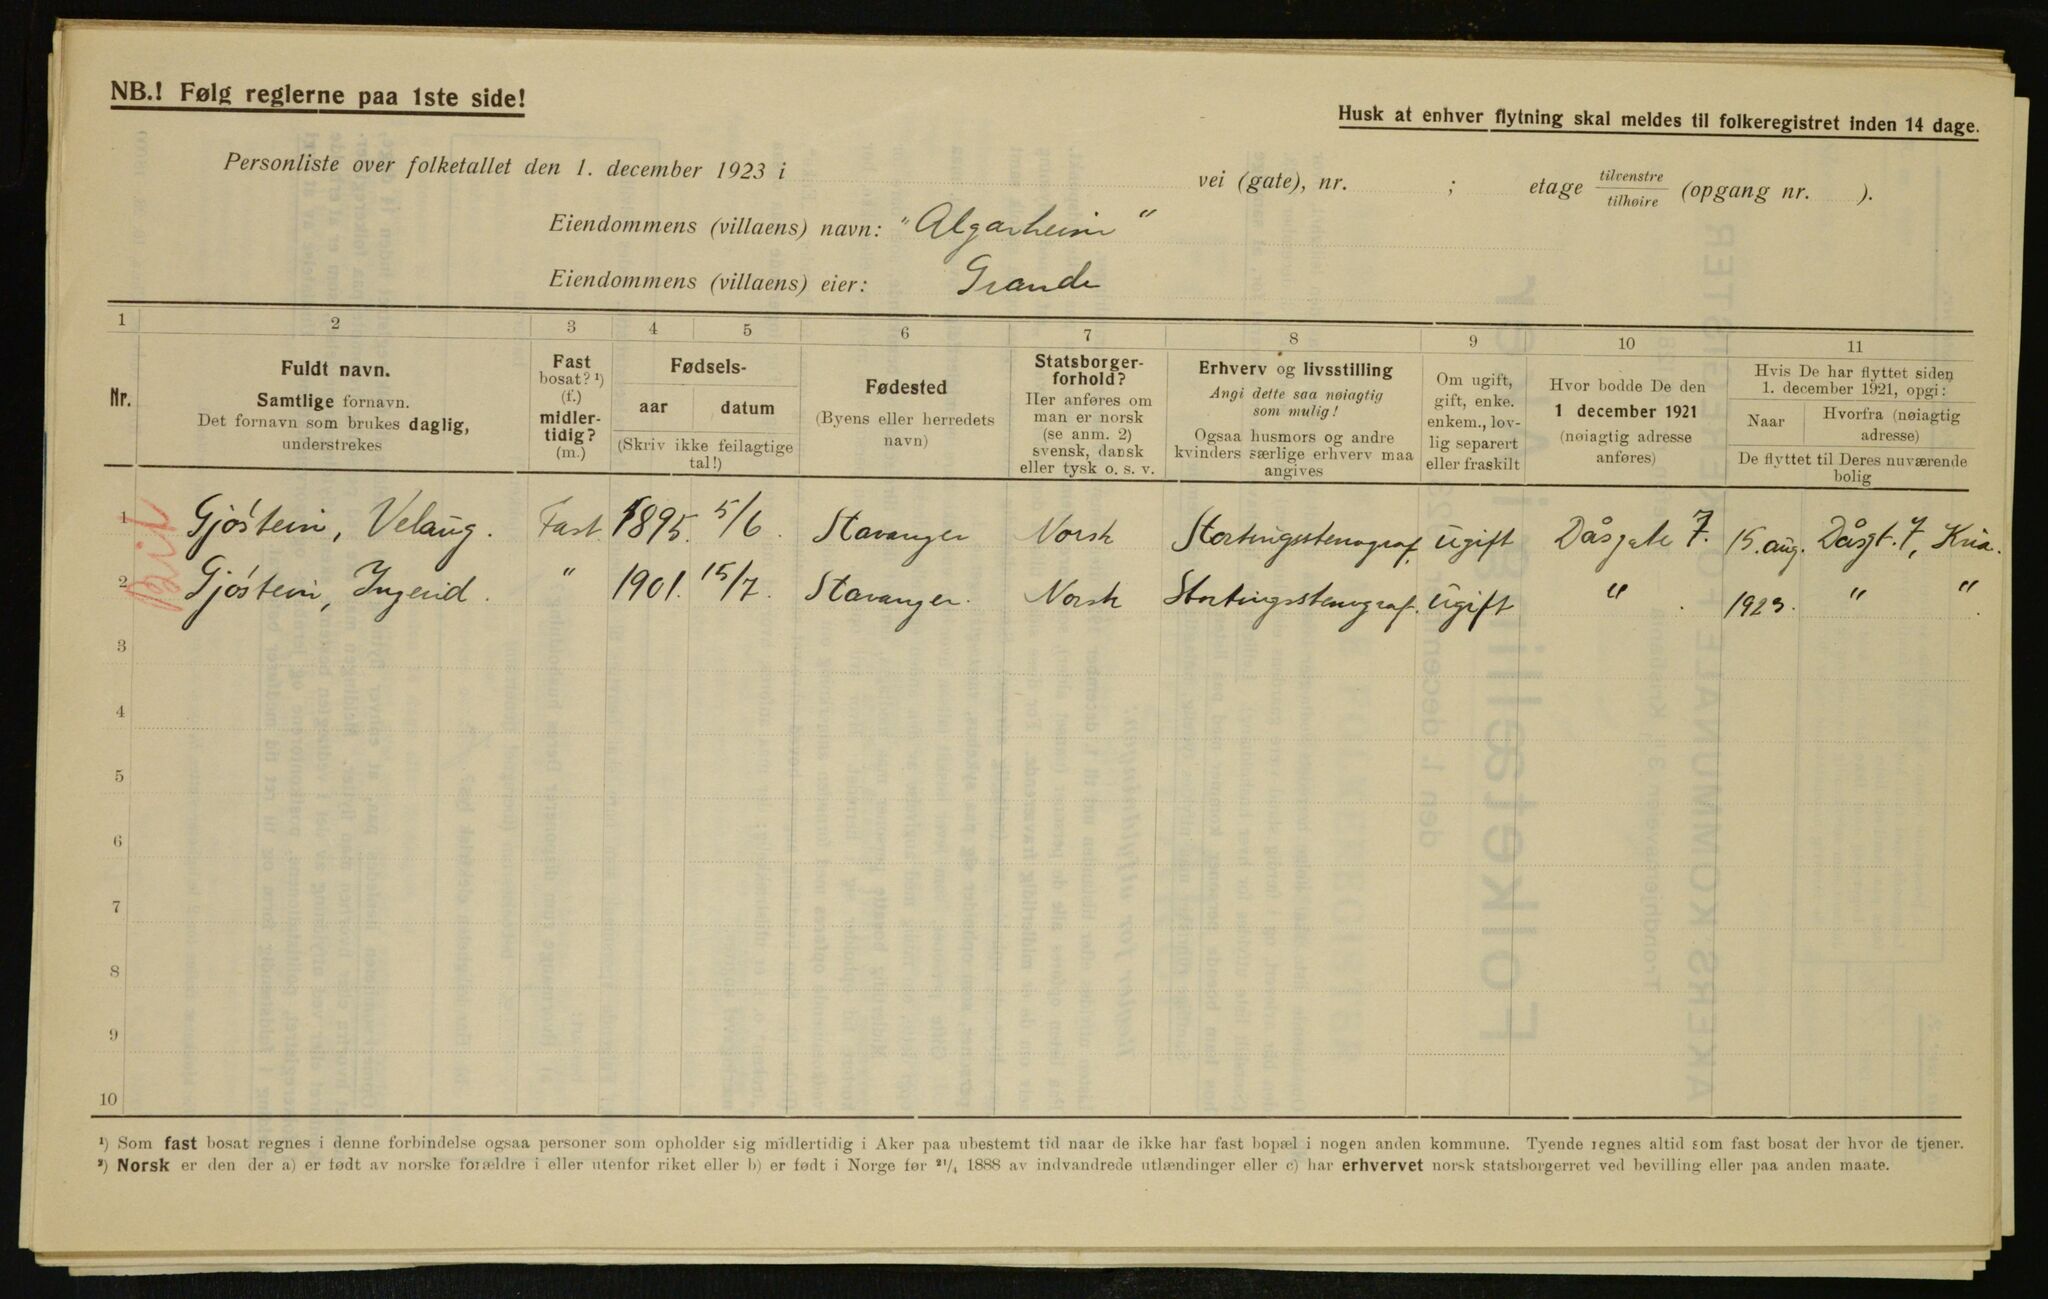 NB.! Følg reglerne paa 1ste side!
Husk at enhver flytning skal meldes til folkeregistret inden 14 dage.
Personliste over folketallet den 1. december 1923 i vei (gate), nr. ; etage tilvenstre tilhøire (opgang nr. ).
Eiendommens (villaens) navn: "Algarheim"
Eiendommens (villaens) eier: Grande
1 2 3 4 5 6 7 8 9 10 11
Nr.
Fuldt navn.
Samtlige fornavn.
Det fornavn som brukes daglig,
understrekes
Fast
bosat? ¹)
(f.)
midler-
tidig?
(m.)
Fødsels-
aar datum
(Skriv ikke feilagtige
tal!)
Fødested
(Byens eller herredets
navn)
Statsborger-
forhold?
Her anføres om
man er norsk
(se anm. 2)
svensk, dansk
eller tysk o. s. v.
Erhverv og livsstilling
Angi dette saa nøiagtig
som mulig!
Ogsaa husmors og andre
kvinders særlige erhverv maa
angives
Om ugift,
gift, enke.
enkem., lov-
lig separert
eller fraskilt
Hvor bodde De den
1 december 1921
(nøiagtig adresse
anføres)
Hvis De har flyttet siden
1. december 1921, opgi:
Naar Hvorfra (nøiagtig
adresse)
De flyttet til Deres nuværende
bolig
1 Gjöstein, Velaug. Fast 1895. 5/6. Stavanger Norsk Stortingsstenograf. ugift Dåsgate 7. 15. aug. Dåsgt. 7, Kria.
2 Gjöstein, Ingerid. " 1901. 15/7. Stavanger. Norsk Stortingsstenograf. ugift " 1923. " "
3
4
5
6
7
8
9
10
¹) Som fast bosat regnes i denne forbindelse ogsaa personer som opholder sig midlertidig i Aker paa ubestemt tid naar de ikke har fast bopæl i nogen anden kommune. Tyende regnes altid som fast bosat der hvor de tjener.
²) Norsk er den der a) er født av norske forældre i eller utenfor riket eller b) er født i Norge før ²¹/₄ 1888 av indvandrede utlændinger eller c) har erhvervet norsk statsborgerret ved bevilling eller paa anden maate.